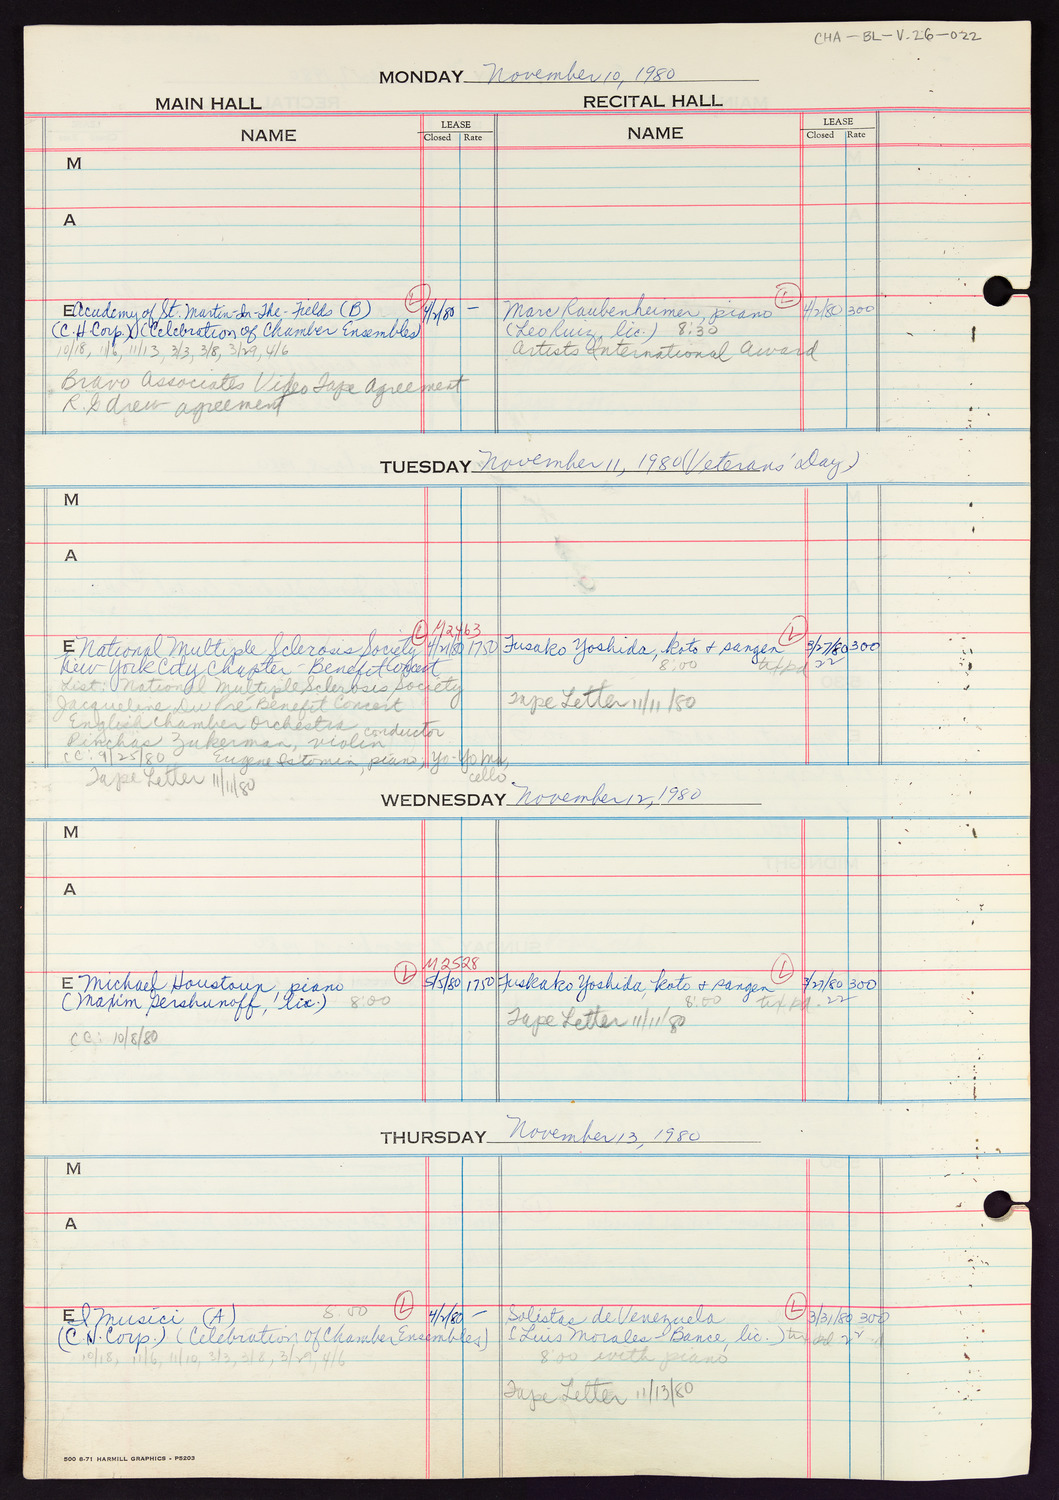 CHA-BL-V.26-022
MONDAY November 10, 1980
MAIN HALL RECITAL HALL
NAME LEASE Closed Rate NAME LEASE Closed Rate
M
A
E Academy of St. Martin-In-The-Fields (B) L 4/2/80 —
(C.H. Corp.) (Celebration of Chamber Ensembles)
10/18, 11/6, 11/13, 3/3, 3/8, 3/29, 4/6
Bravo Associates Video Tape Agreement
agreement
Marc Raubenheimer, piano L 4/2/80 300
(Leo Ruiz, lic.) 8:30
Artists International Award
TUESDAY November 11, 1980 (Veterans' Day)
M
A
M2463
E National Multiple Sclerosis Society L 4/21/80 1750
New York City Chapter - Benefit Concert
List: National Multiple Sclerosis Society
Jacqueline Du Pre Benefit Concert
English Chamber Orchestra
Pinchas Zukerman, violin conductor
CC: 9/25/80 Eugene Istomin, piano, Yo-Yo Ma,
cello
Tape Letter 11/11/80
Fusako Yoshida, koto + sangen L 3/27/80 300
8:00 tix pd 22
Tape Letter 11/11/80
WEDNESDAY November 12, 1980
M
A
M2528
E Michael Houstoun, piano L 5/5/80 1750
(Maxim Gershunoff, lic.) 8:00
CC: 10/8/80
Fuskako Yoshida, koto + sangen L 3/27/80 300
8:00 tix pd. 22
Tape Letter 11/11/80
THURSDAY November 13, 1980
M
A
E I Musici (A) 8:00 L 4/2/80 —
(C.H. Corp.) (Celebration of Chamber Ensembles)
10/18, 11/6, 11/10, 3/3, 3/8, 3/29, 4/6
Solistas de Venezuela L 3/31/80 300
(Luis Morales-Bance, lic.) tix pd 22
8:00 with piano
Tape Letter 11/13/80
500 8-71 HARMILL GRAPHICS - P5203